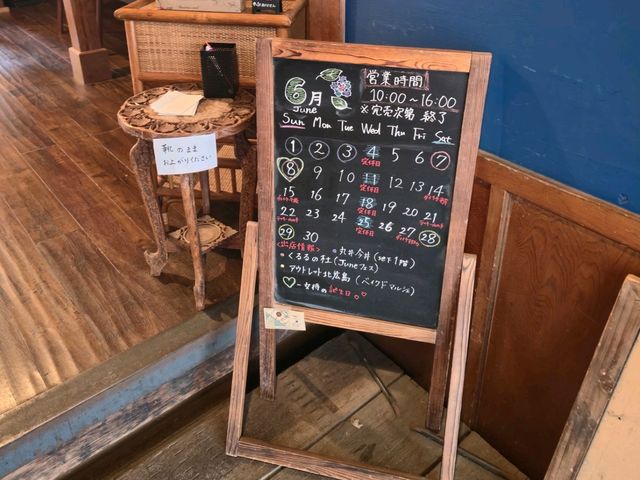 靴のまま
お上がりください
6月
June
営業時間
10:00～16:00
※完売次第終了
Sun Mon Tue Wed Thu Fri Sat
1 2 3 4 5 6 7
定休日
8 9 10 11 12 13 14
定休日
15 16 17 18 19 20 21
定休日
22 23 24 25 26 27 28
定休日
29 30
<出店情報>
・丸井今井(地下1階)
・くるるの杜(Juneフェス)
・アウトレット北広島(ベイクドマルシェ)
♡-女将の誕生日♡♡